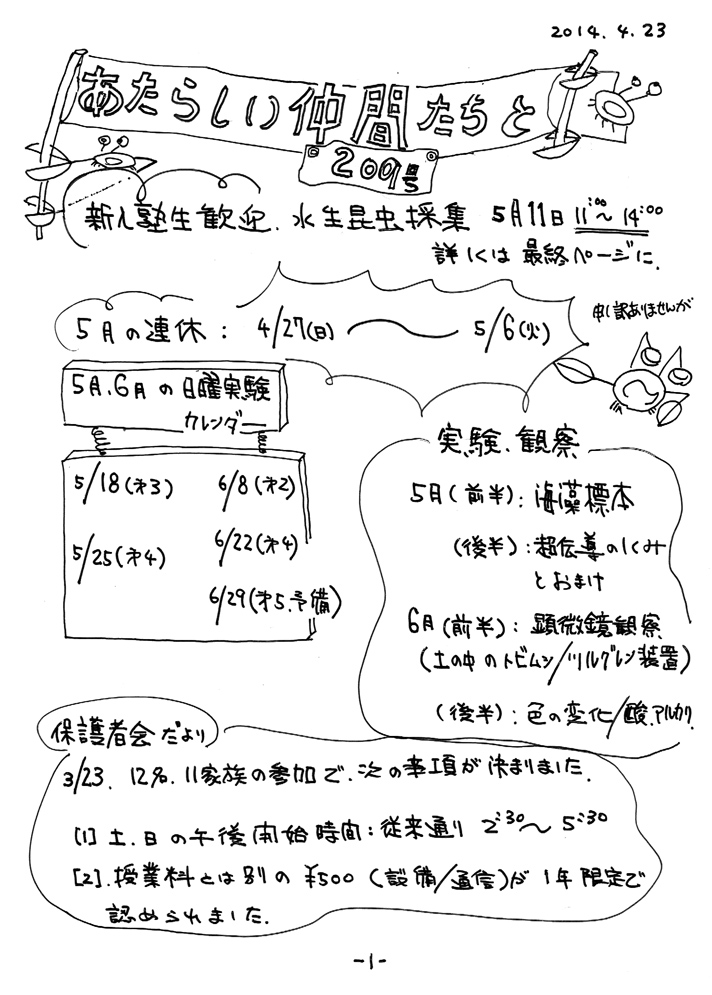 2014.4.23
あたらしい仲間たちと
200号
新入塾生歓迎、水生昆虫採集 5月11日 11:00〜14:00
詳しくは最終ページに.
5月の連休: 4/27(日) 〜 5/6(火)
申し訳ありませんが
5月、6月の日曜実験
カレンダー
5/18(才3) 6/8(才2)
5/25(才4) 6/22(才4)
6/29(才5、予備)
実験、観察
5月(前半): 海藻標本
(後半): 超伝導のしくみ
とおまけ
6月(前半): 顕微鏡観察
(土の中のトビムシ/ツルグレン装置)
(後半): 色の変化/酸、アルカリ
保護者会だより
3/23、12名、11家族の参加で、次の事項が決まりました.
[1] 土、日の午後開始時間: 従来通り 2:30〜5:30
[2]. 授業料とは別の ¥500 (設備/通信)が 1年限定で
認められました.
-1-